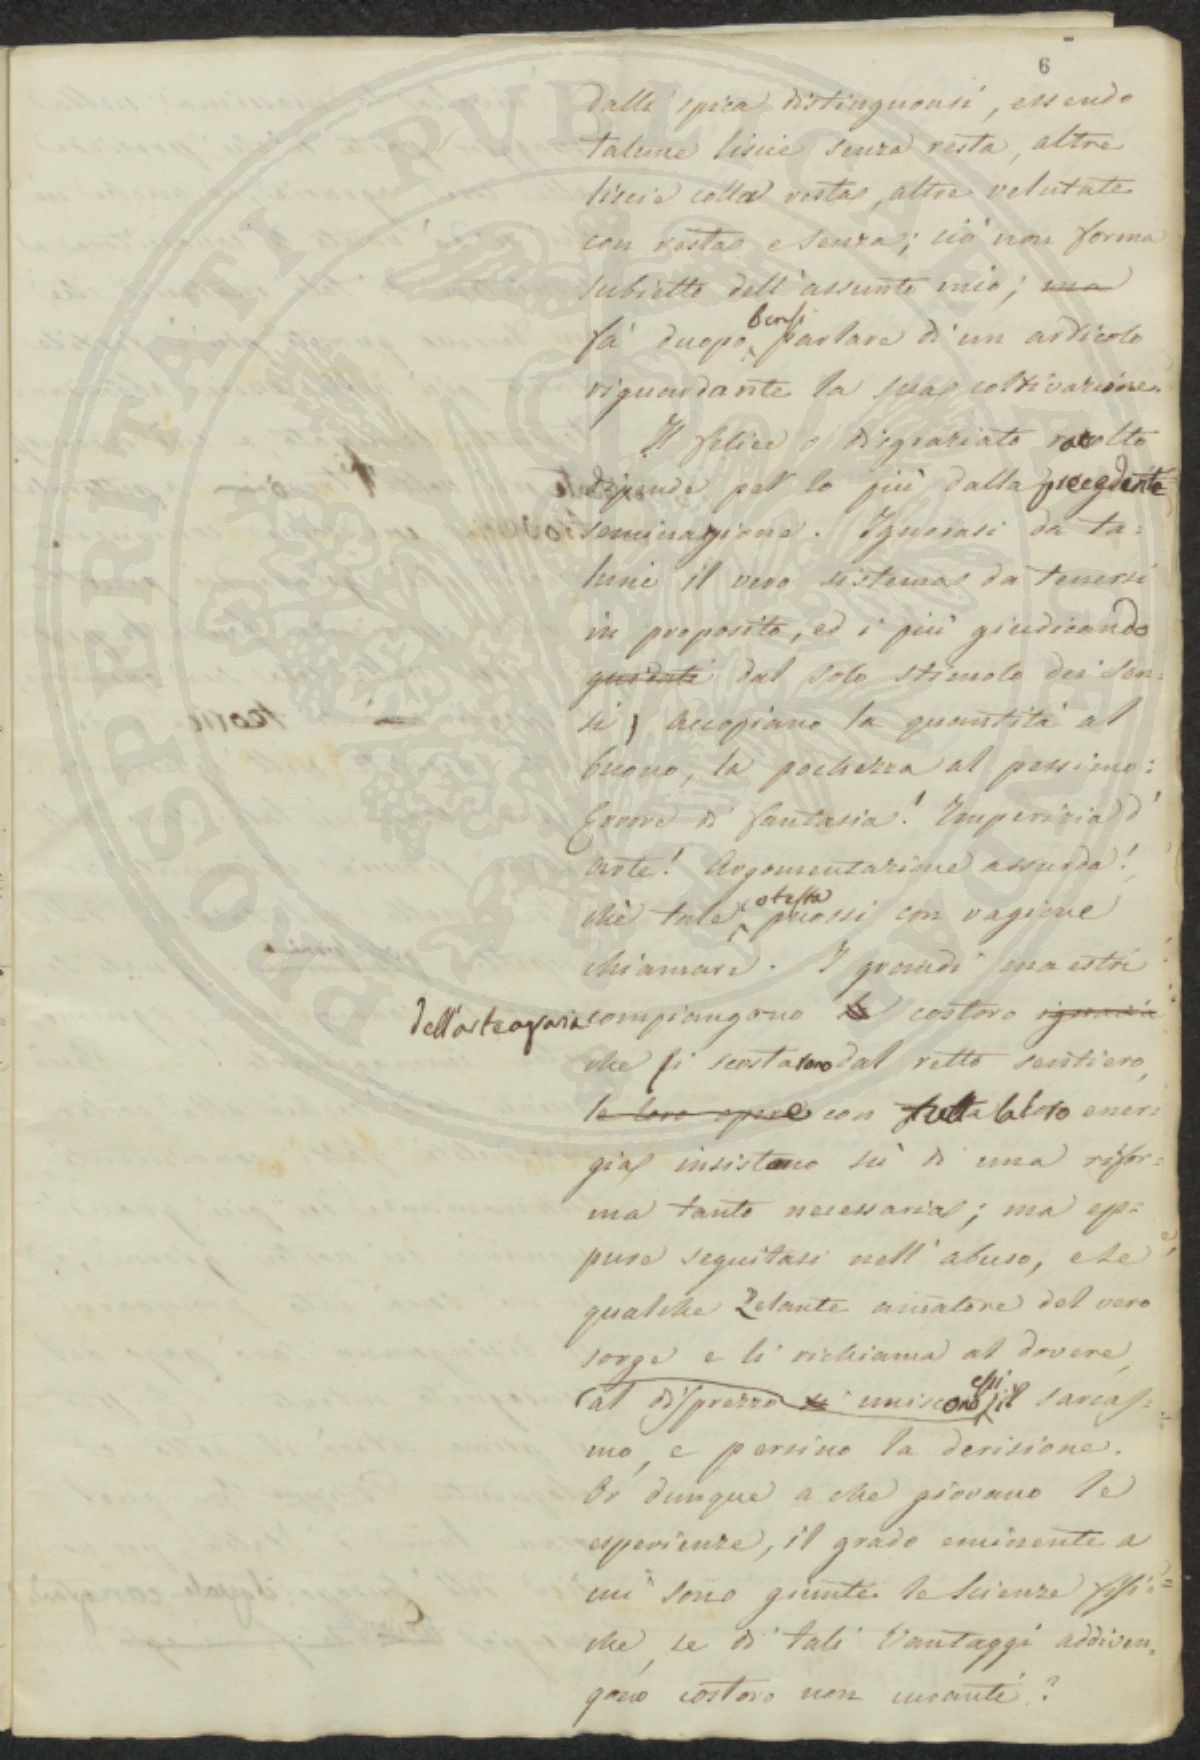 6
dalla spica distinguonsi, essendo
talune liscie senza resta, altre
liscie colla resta, altre velutate
con resta e senza; ciò non forma
subietto dell'assunto mio; ma
fà duopo bensi parlare di un articolo
riguardante la sua coltivazione.
Il felice o disgraziato racolto
dipende pel lo più dalla precedente
seminagione. Ignorasi da ta=
luni il vero sistema da tenersi
in proposito, ed i più giudicando
guidati dal solo stimolo dei sen=
si, accopiano la quantità al
buono, la pochezza al pessimo:
Errore di fantasia! Imperizia d'
arte! Argomentazione assurda!,
chè tale potessi con ragione
chiamare. I grandi maestri
dell'arte agraria compiangono costoro
che si scostarono dal retto sentiero,
le loro opere con tutta la loro ener=
gia insistono sù di una rifor=
ma tanto necessaria; ma ep=
pure seguitasi nell'abuso, e se
qualche Zelante amatore del vero
sorge e li richiama al dovere,
al disprezzo si uniscono essi il sarcas=
mo, e persino la derisione.
Or dunque a che giovano le
esperienze, il grado eminente a
cui sono giunte le Scienze fisi=
che, se di tali Vantaggi addiven=
gono costoro non curanti?